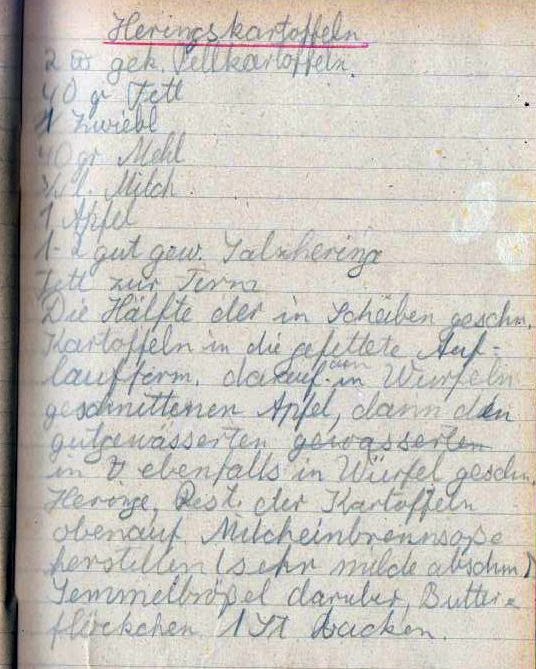 Heringskartoffeln
2 ℔ gek. Pellkartoffeln
40 g Fett
1 Zwiebl
40 gr Mehl
¾ l. Milch
1 Apfel
1-2 gut gew. Salzheringe
Fett zur Form
Die Hälfte der in Scheiben geschn.
Kartoffeln in die gefettete Auf-
laufform, darauf den in Würfeln
geschnittenen Apfel, dann den
gutgewässerten gewässerten
in ebenfalls in Würfel geschn.
Heringe, Rest der Kartoffeln
obenauf. Milcheinbrennsoße
herstellen (sehr milde abschm.)
Semmelbrößel darüber, Butter=
flöckchen 1 St backen.